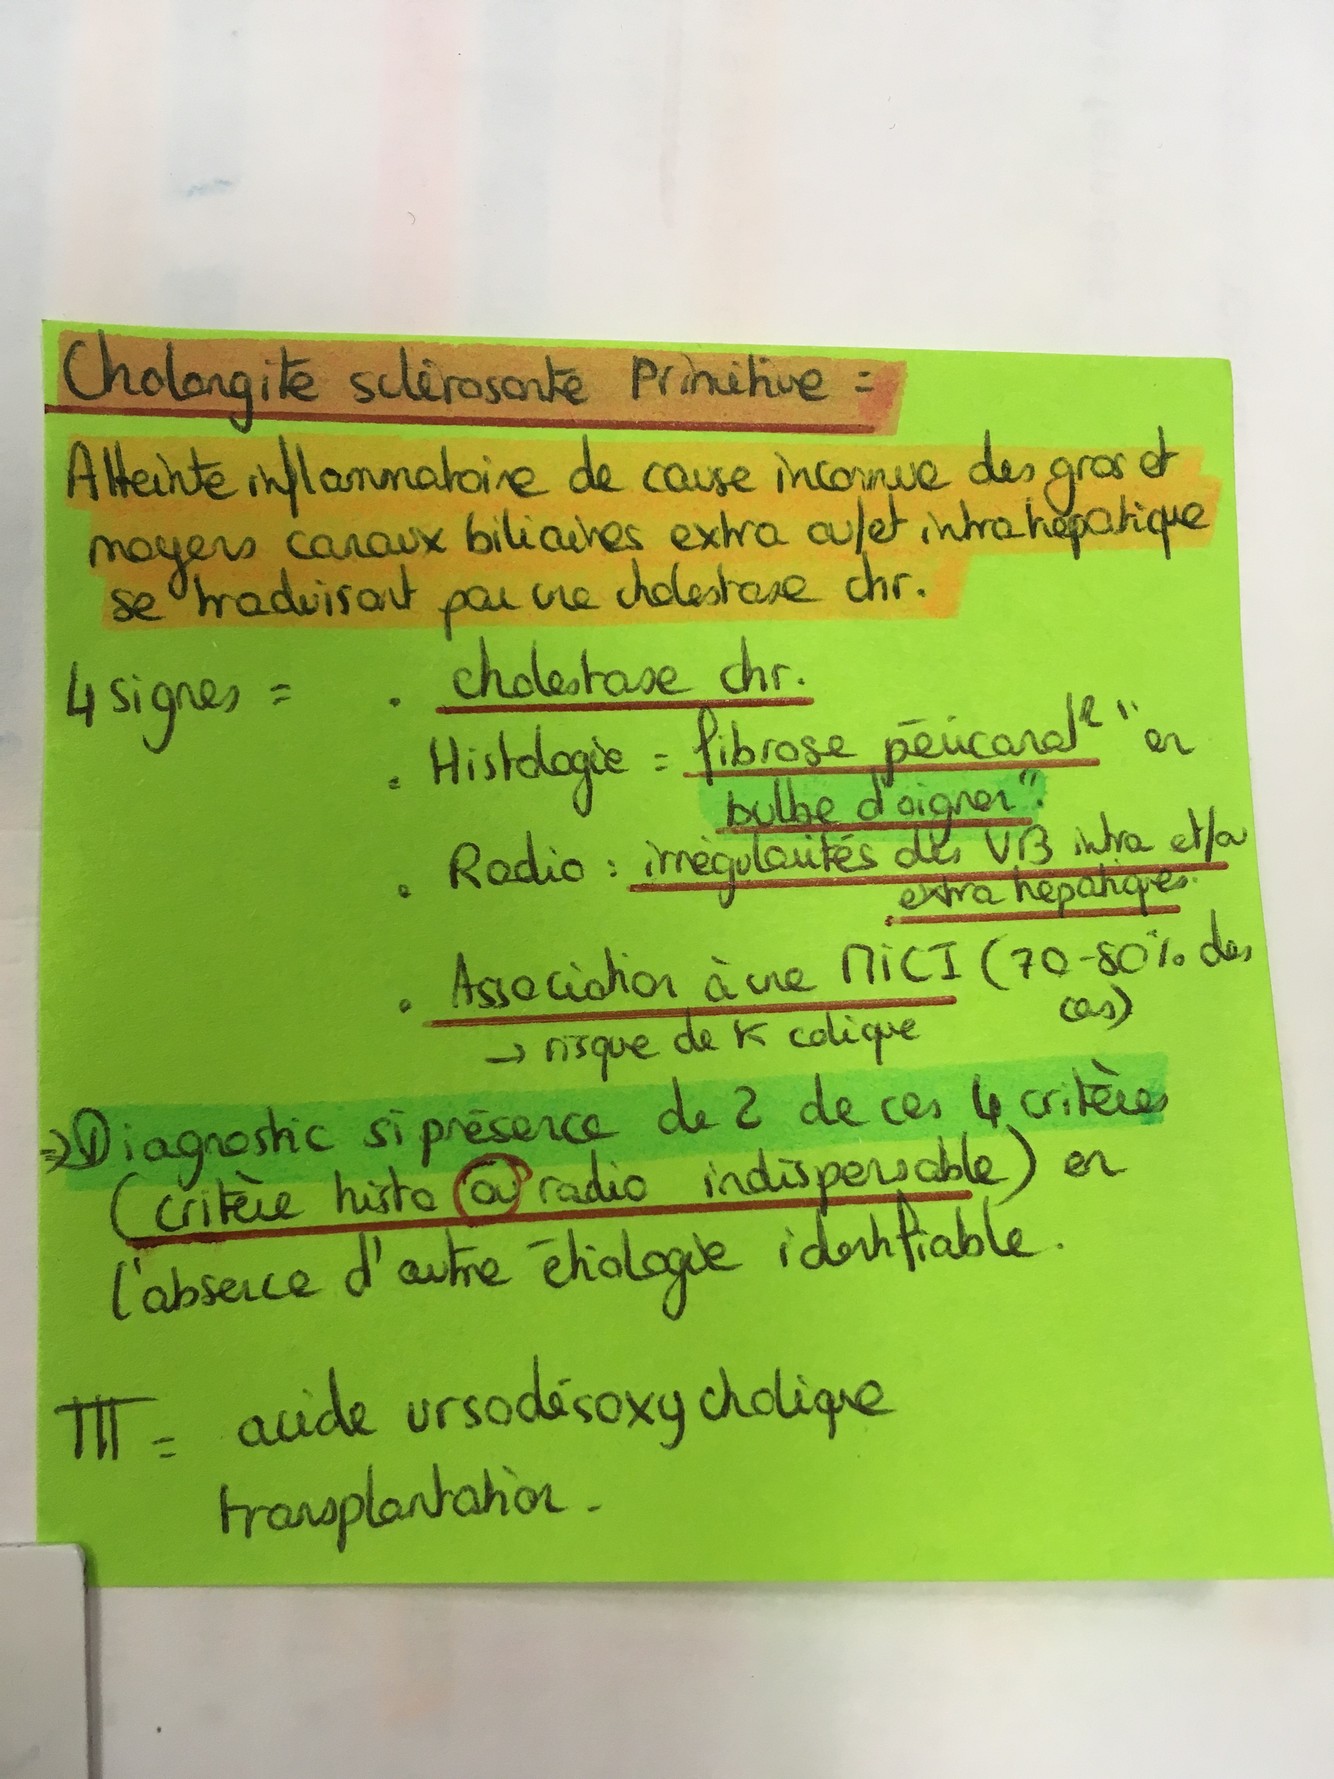 Cholangite sclérosante Primitive =
Atteinte inflammatoire de cause inconnue des gros et
moyens canaux biliaires extra ou/et intrahépatique
se traduisant par une cholestase chr.
4 signes = . cholestase chr.
. Histologie = fibrose péricanalre "en
bulbe d'oignon".
. Radio : irrégularités des VB intra et/ou
extra hépatiques.
. Association à une MICI (70-80% des
cas)
→ risque de K colique
⇒ Diagnostic si présence de 2 de ces 4 critères
(critère histo ou radio indispensable) en
l'absence d'autre étiologie identifiable.
TTT = acide ursodésoxycholique
transplantation.